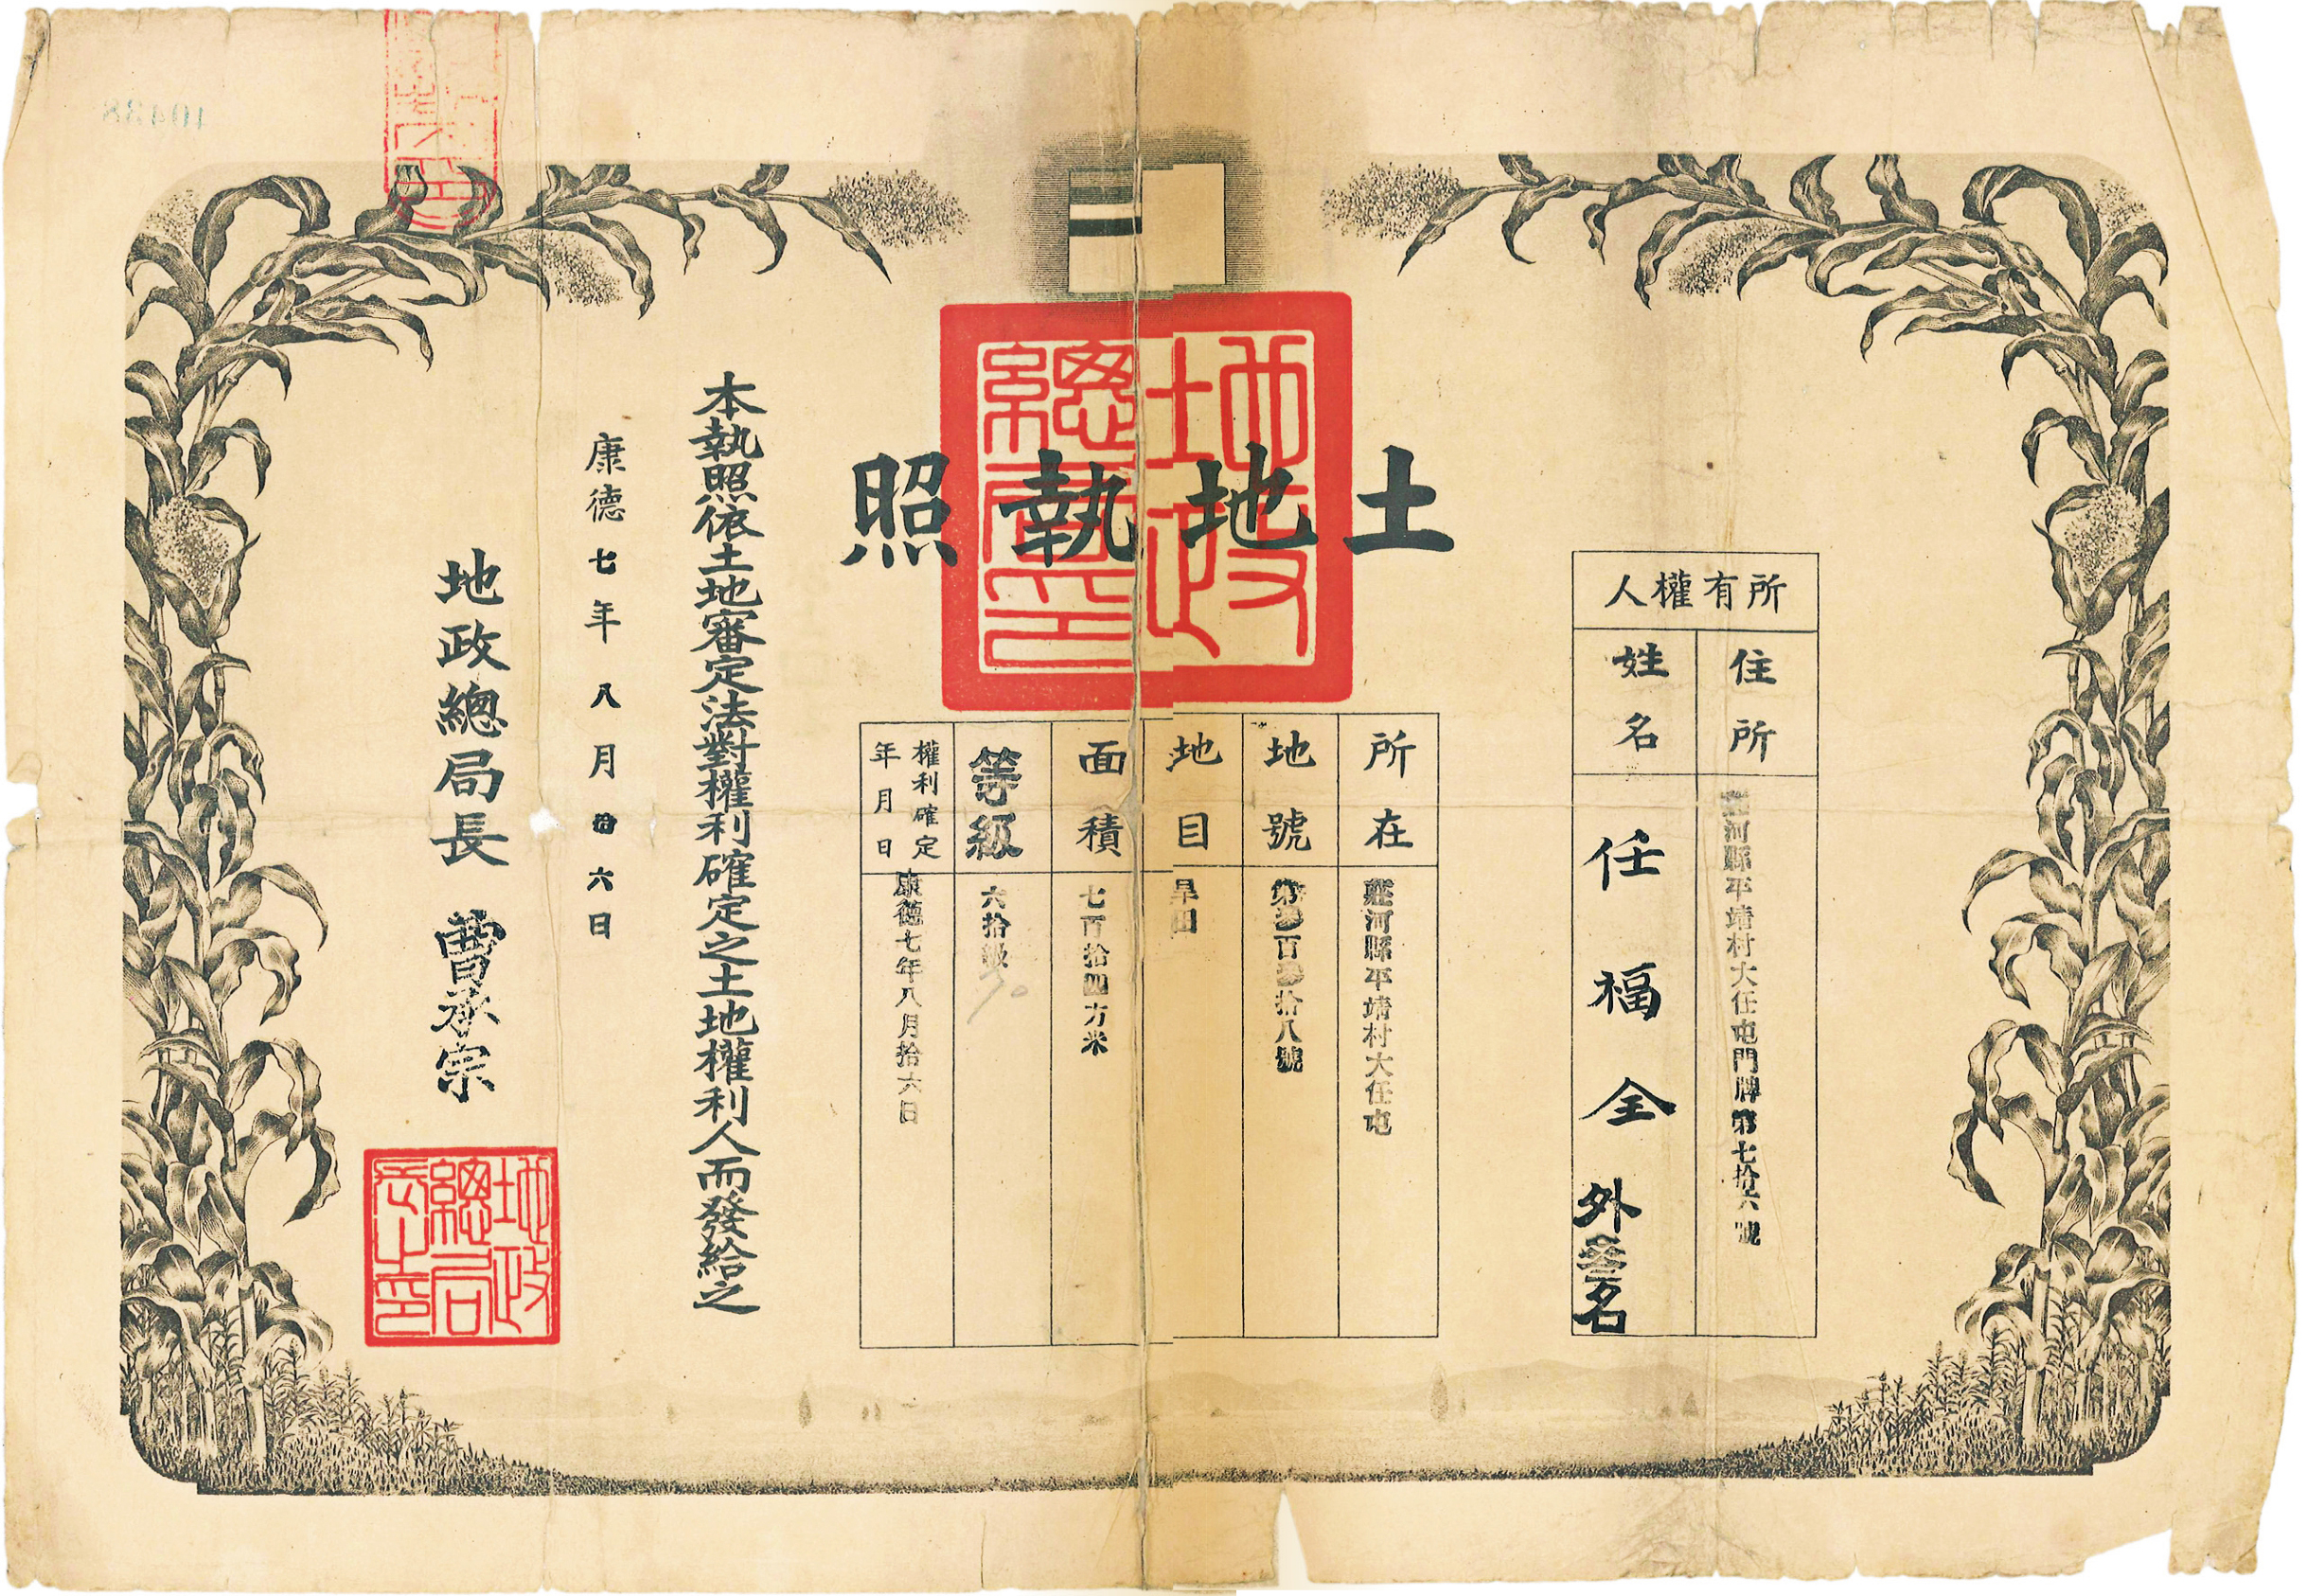 土地執照
地政總局印
所有權人
住所
莊河縣平靖村大任屯門牌第七拾六號
姓名
任福全外叁名
所在
莊河縣平靖村大任屯
地號
第叁百叁拾八號
地目
旱田
面積
七百拾四方米
等級
六拾級
70
權利確定年月日
康德七年八月拾六日
本執照依土地審定法對權利確定之土地權利人而發給之
康德七年八月拾六日
地政總局長 曹承宗
地政總局長之印